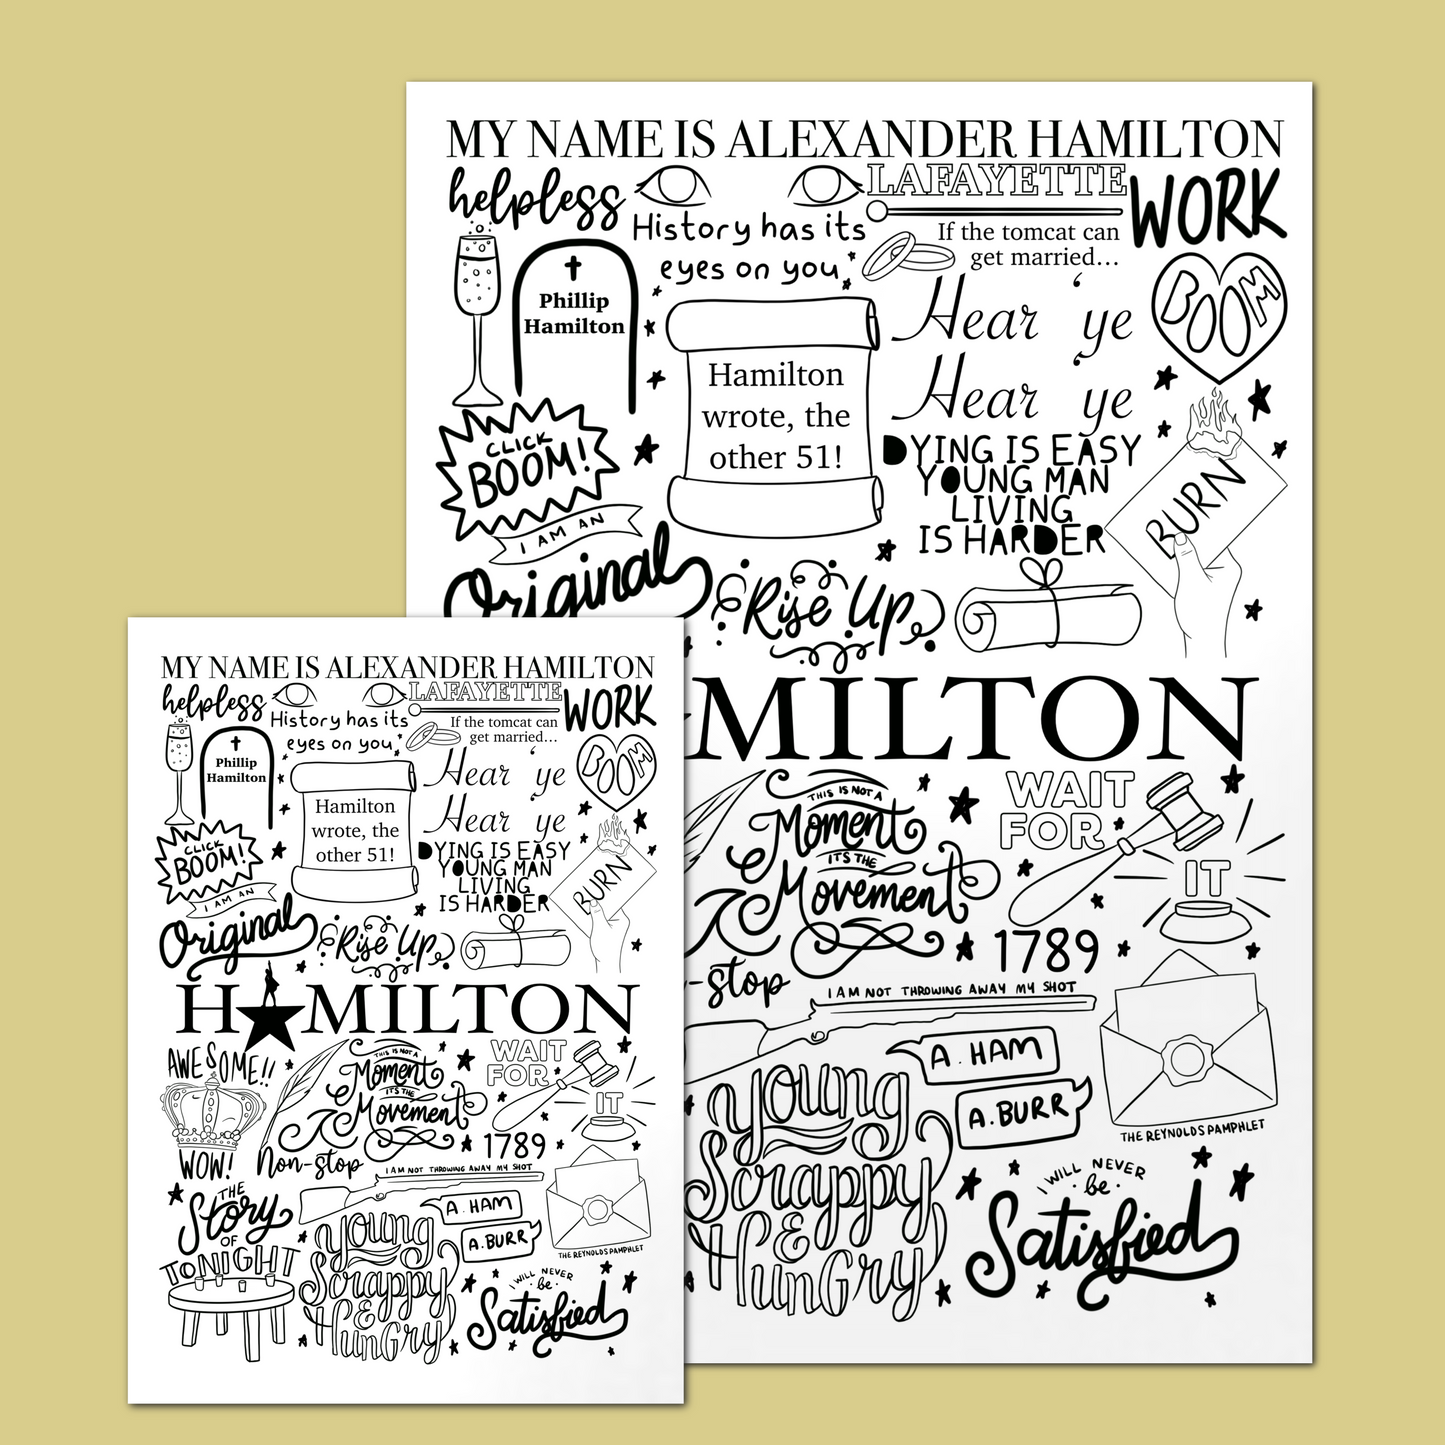 MY NAME IS ALEXANDER HAMILTON
helpless
History has its
eyes on you
LAFAYETTE
If the tomcat can
get married...
WORK
Phillip
Hamilton
Hamilton
wrote, the
other 51!
Hear 'ye
Hear 'ye
BOOM
CLICK
BOOM!
DYING IS EASY
YOUNG MAN
LIVING
IS HARDER
BURN
I AM AN
Original
Rise Up
MILTON
THIS IS NOT A
Moment
IT'S THE
Movement
WAIT
FOR
IT
1789
-stop
I AM NOT THROWING AWAY MY SHOT
A. HAM
A. BURR
THE REYNOLDS PAMPHLET
Young
Scrappy
&
HunGry
I WILL NEVER
be
Satisfied
MY NAME IS ALEXANDER HAMILTON
helpless
History has its
eyes on you
LAFAYETTE
If the tomcat can
get married...
WORK
Phillip
Hamilton
Hamilton
wrote, the
other 51!
Hear 'ye
Hear 'ye
BOOM
CLICK
BOOM!
DYING IS EASY
YOUNG MAN
LIVING
IS HARDER
BURN
I AM AN
Original
Rise Up
H★MILTON
AWESOME!!
WOW!
THIS IS NOT A
Moment
IT'S THE
Movement
WAIT
FOR
IT
1789
Non-stop
I AM NOT THROWING AWAY MY SHOT
THE
Story
OF
TONIGHT
A. HAM
A. BURR
THE REYNOLDS PAMPHLET
Young
Scrappy
&
HunGry
I WILL NEVER
be
Satisfied